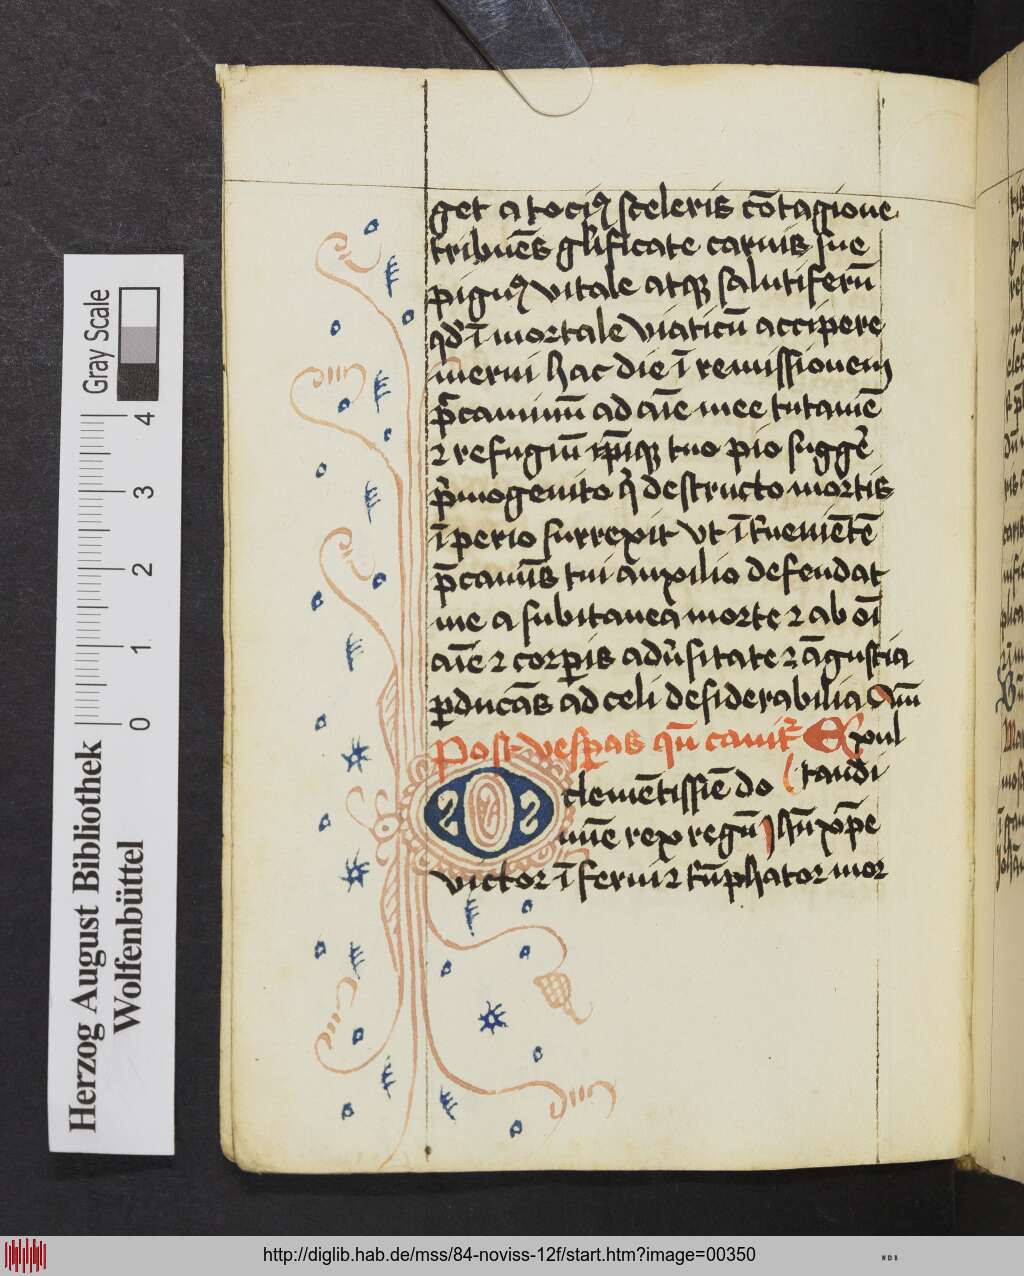 get a tociꝰ sceleris cōtagione
tribuēs glīficate carnis sue
pignꝰ vitale atqꝫ salutiferū
qd̄ ī mortale viaticū accipere
merui hac die ī remissionem
p̄caminū ad aīe mee tutamē
⁊ refugiū ip̄iqꝫ tuo pio suggē
p̄mogenito q̄ destructo mortis
īperio surrexit vt īt̄uenīetē
p̄camīs tui auxilio defendat
me a subitanea morte ⁊ ab oī
aīe ⁊ corꝑis adūsitate ⁊ āgustia
ꝑducās ad celi desiderabilia Am̄
Post vesꝑas qn̄ canit᷑ Expul
O clemētissīe do tandi
mīe rex regū ihū xp̄e
victor īferni ⁊ t̄uphator mor
Gray Scale
4
3
2
1
0
Herzog August Bibliothek
Wolfenbüttel
http://diglib.hab.de/mss/84-noviss-12f/start.htm?image=00350